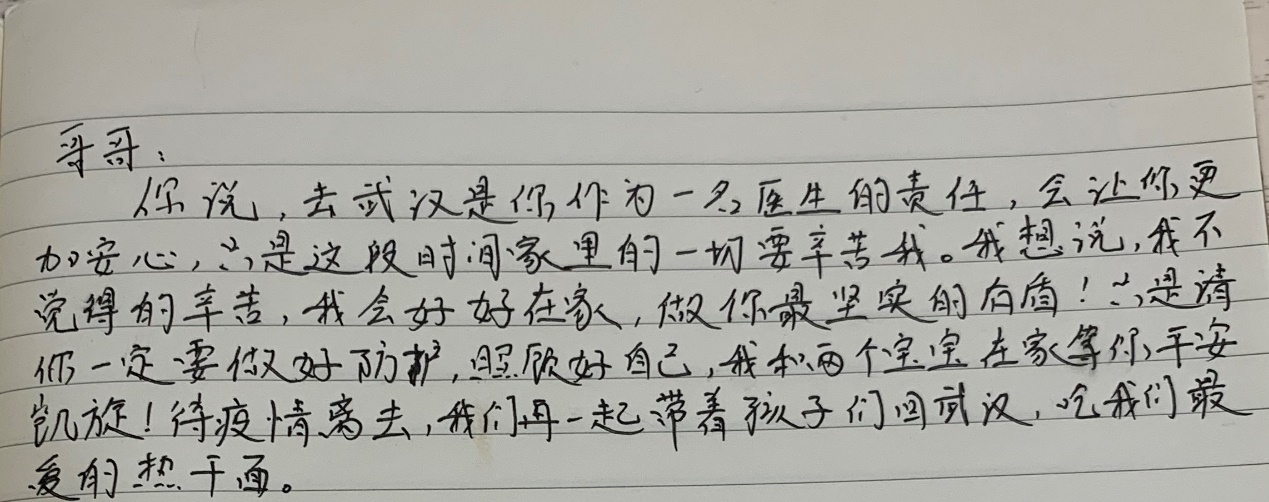 哥哥：
你说，去武汉是你作为一名医生的责任，会让你更
加安心，只是这段时间家里的一切要辛苦我。我想说，我不
觉得的辛苦，我会好好在家，做你最坚实的后盾！只是请
你一定要做好防护，照顾好自己，我和两个宝宝在家等你平安
凯旋！待疫情离去，我们再一起带着孩子们回武汉，吃我们最
爱的热干面。